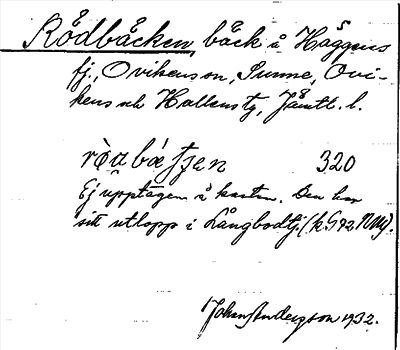 Rödbäcken, bäck å Häggens
fj., Ovikens sn, Sunne, Ovi-
kens och Hallens tg, Jämtl. l.
320
Ej upptagen å kartan. Den har
sitt utlopp i Långbodtj.
Johan Anderzson 1932.